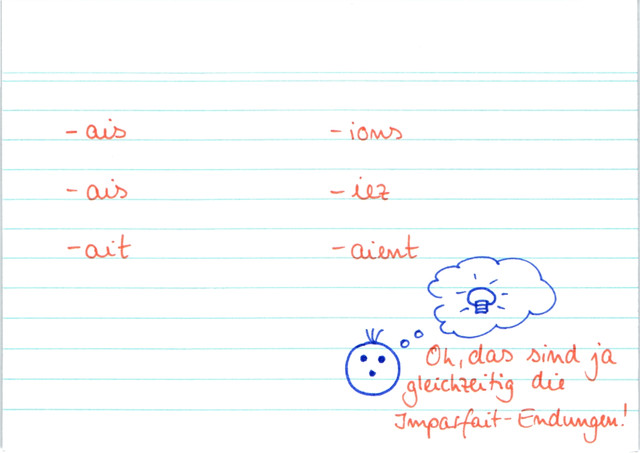 - ais
- ais
- ait
- ions
- iez
- aient
Oh, das sind ja
gleichzeitig die
Imparfait-Endungen!